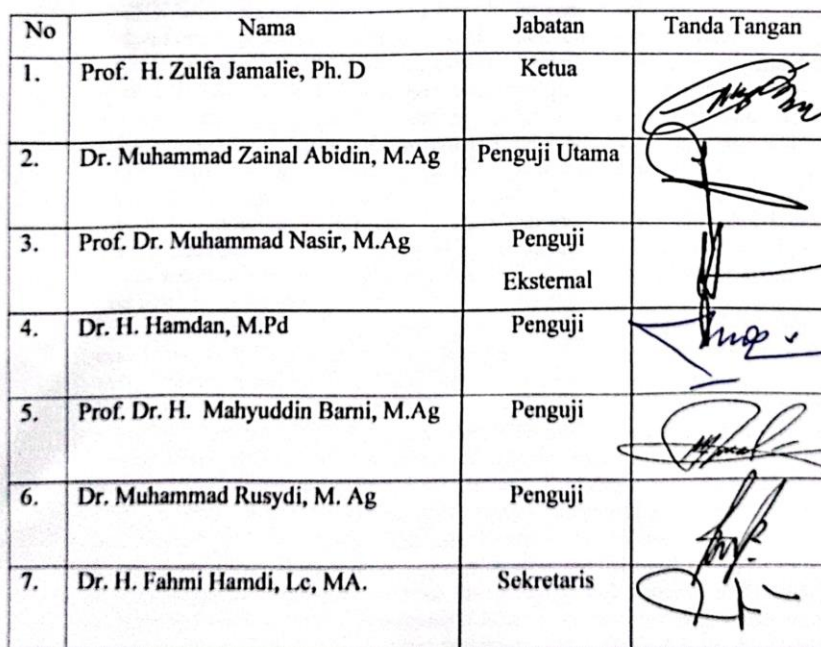 No Nama Jabatan Tanda Tangan
1. Prof. H. Zulfa Jamalie, Ph. D Ketua
2. Dr. Muhammad Zainal Abidin, M.Ag Penguji Utama
3. Prof. Dr. Muhammad Nasir, M.Ag Penguji
Eksternal
4. Dr. H. Hamdan, M.Pd Penguji
5. Prof. Dr. H. Mahyuddin Barni, M.Ag Penguji
6. Dr. Muhammad Rusydi, M. Ag Penguji
7. Dr. H. Fahmi Hamdi, Lc, MA. Sekretaris